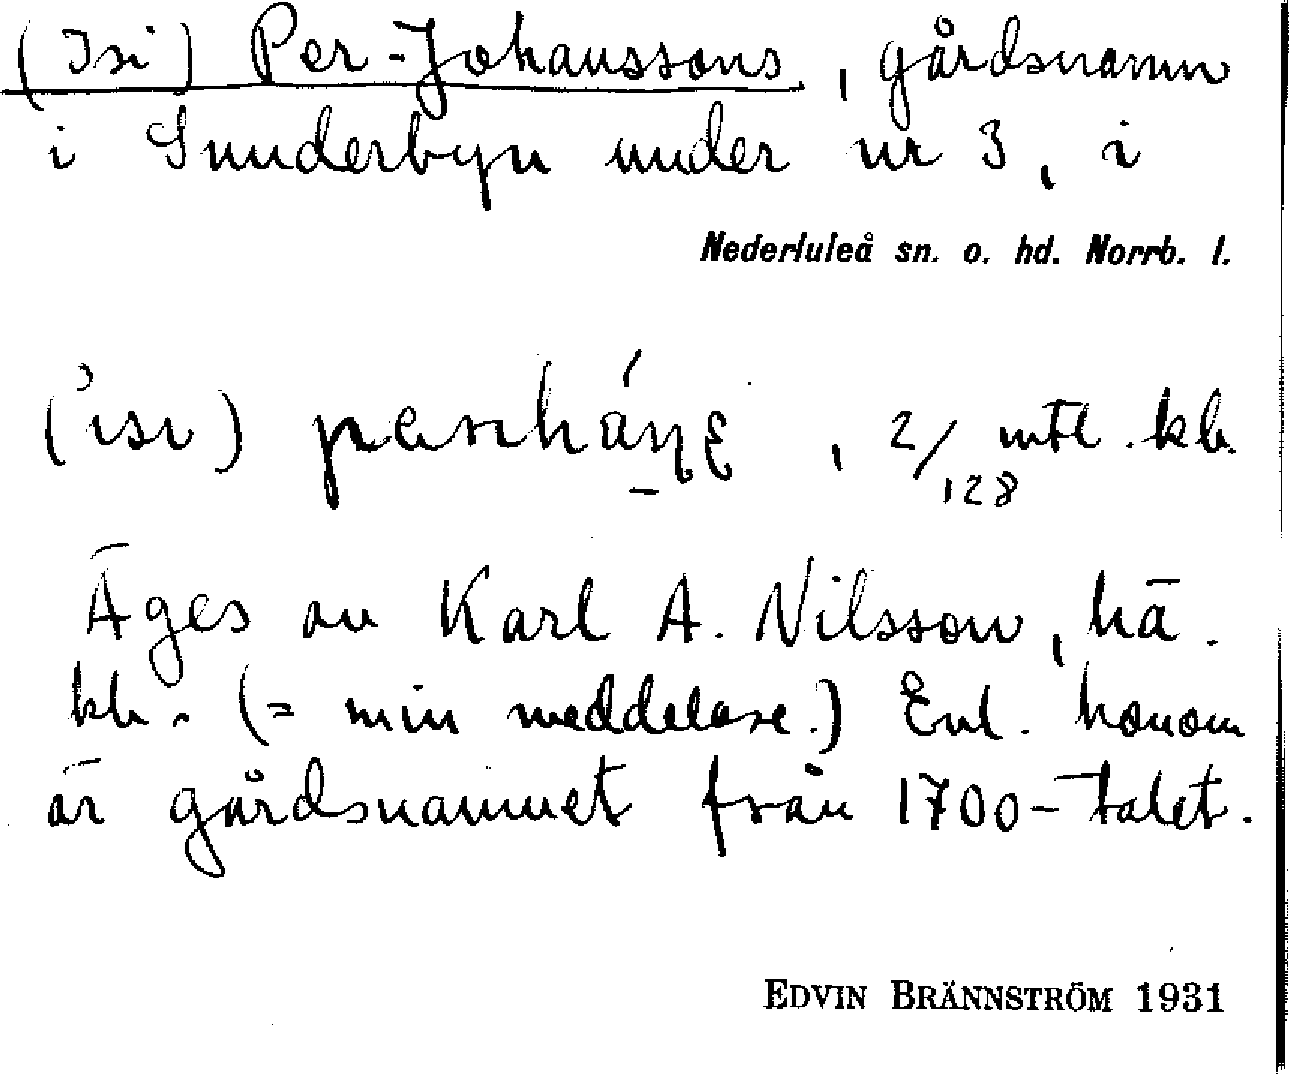 (Isi) Per-Johanssons, gårdsnamn
i Sunderbyn under nr 3, i
Nederluleå sn. o. hd. Norrb. l.
(isi) , 2/128 mtl. kb.
Äges av Karl A. Nilsson, hä.
kb. (= min meddelare.) Enl. honom
är gårdsnamnet från 1700-talet.
EDVIN BRÄNNSTRÖM 1931